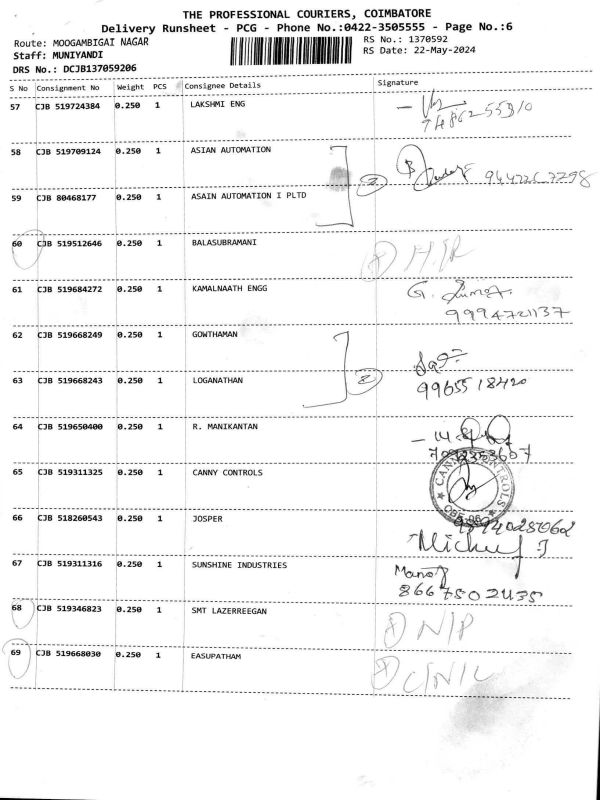 THE PROFESSIONAL COURIERS, COIMBATORE
Delivery Runsheet - PCG - Phone No.:0422-3505555 - Page No.:6
Route: MOOGAMBIGAI NAGAR
RS No.: 1370592
Staff: MUNIYANDI
RS Date: 22-May-2024
DRS No.: DCJB137059206
S No Consignment No Weight PCS Consignee Details Signature
57 CJB 519724384 0.250 1 LAKSHMI ENG
58 CJB 519709124 0.250 1 ASIAN AUTOMATION
59 CJB 80468177 0.250 1 ASAIN AUTOMATION I PLTD
2
60 CJB 519512646 0.250 1 BALASUBRAMANI
61 CJB 519684272 0.250 1 KAMALNAATH ENGG
G.
9994721137
62 CJB 519668249 0.250 1 GOWTHAMAN
63 CJB 519668243 0.250 1 LOGANATHAN
2
9965518420
64 CJB 519650400 0.250 1 R. MANIKANTAN
65 CJB 519311325 0.250 1 CANNY CONTROLS
CANNY CONTROLS
66 CJB 518260543 0.250 1 JOSPER
67 CJB 519311316 0.250 1 SUNSHINE INDUSTRIES
Manoj
8667502435
68 CJB 519346823 0.250 1 SMT LAZERREEGAN
N/P
69 CJB 519668030 0.250 1 EASUPATHAM
C/N/L